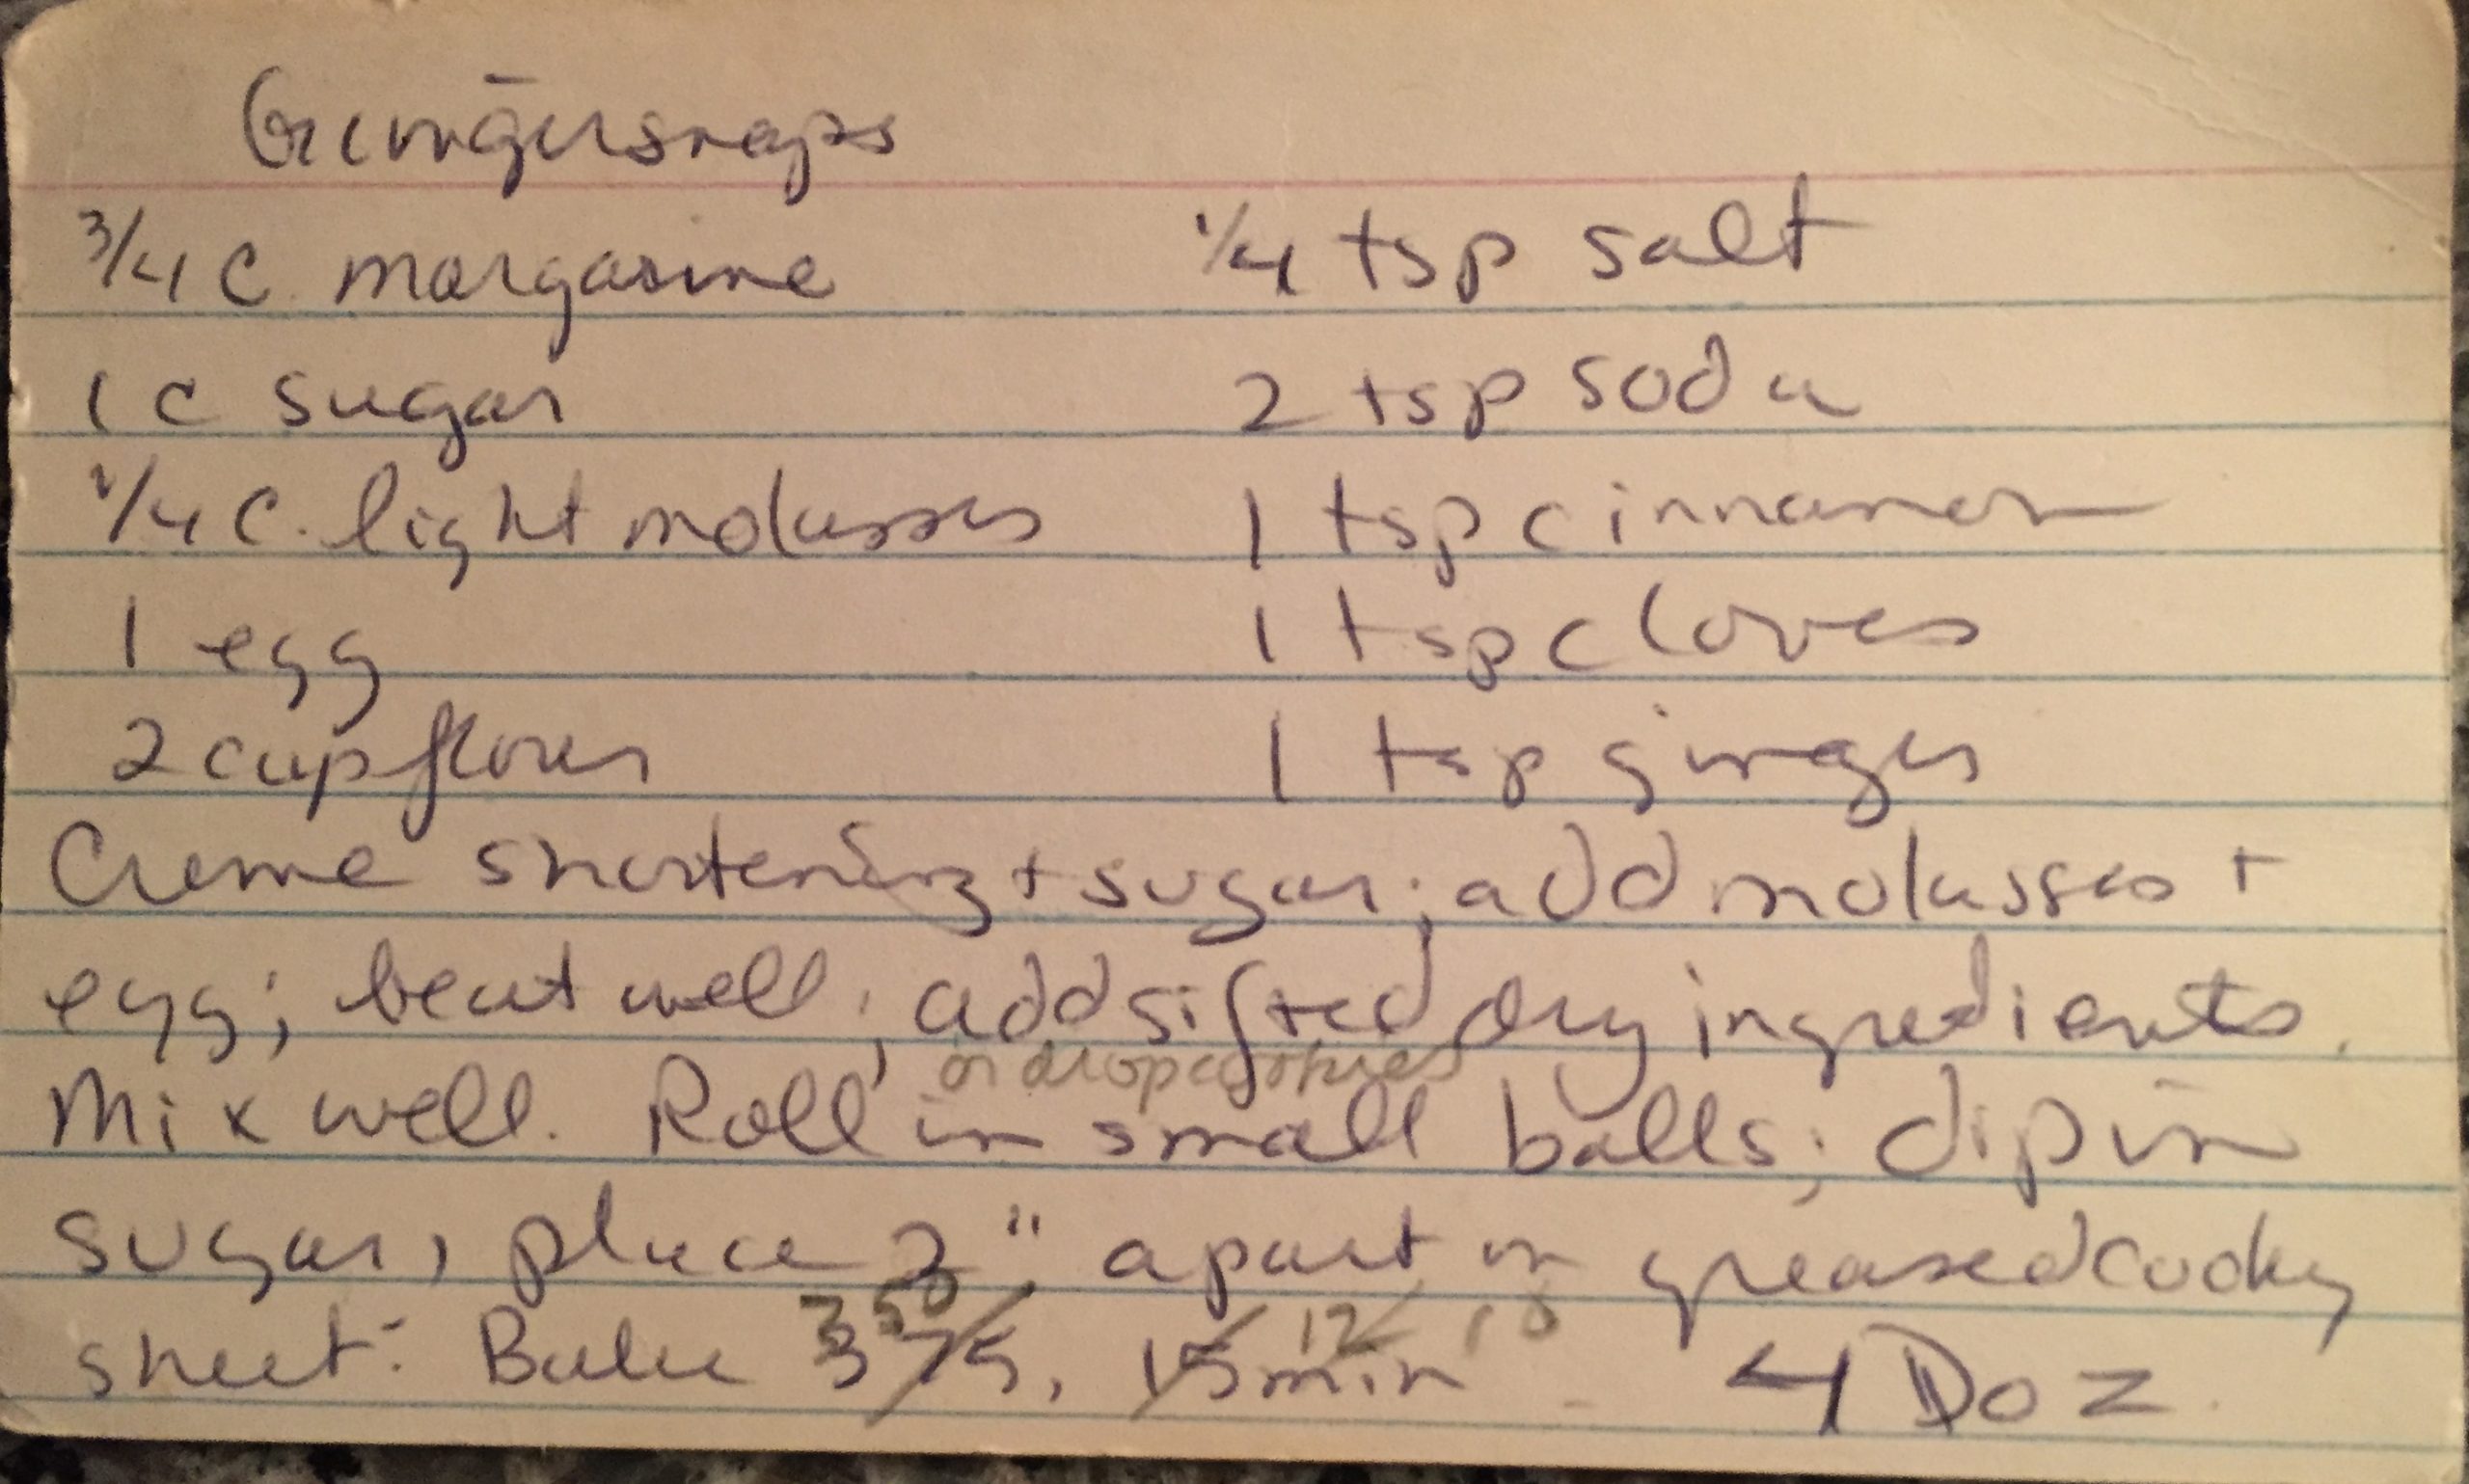 Gingersnaps
3/4 C. margarine
1 c sugar
1/4 C. light molasses
1 egg
2 cup flour
1/4 tsp salt
2 tsp soda
1 tsp cinnamon
1 tsp cloves
1 tsp ginger
Creme shortening + sugar; add molasses +
egg; beat well; add sifted dry ingredients.
or drop cookies
Mix well. Roll in small balls; dip in
sugar, place 2" apart on greased cooky
350 12 10
sheet: Bake 375, 15 min. 4 Doz.